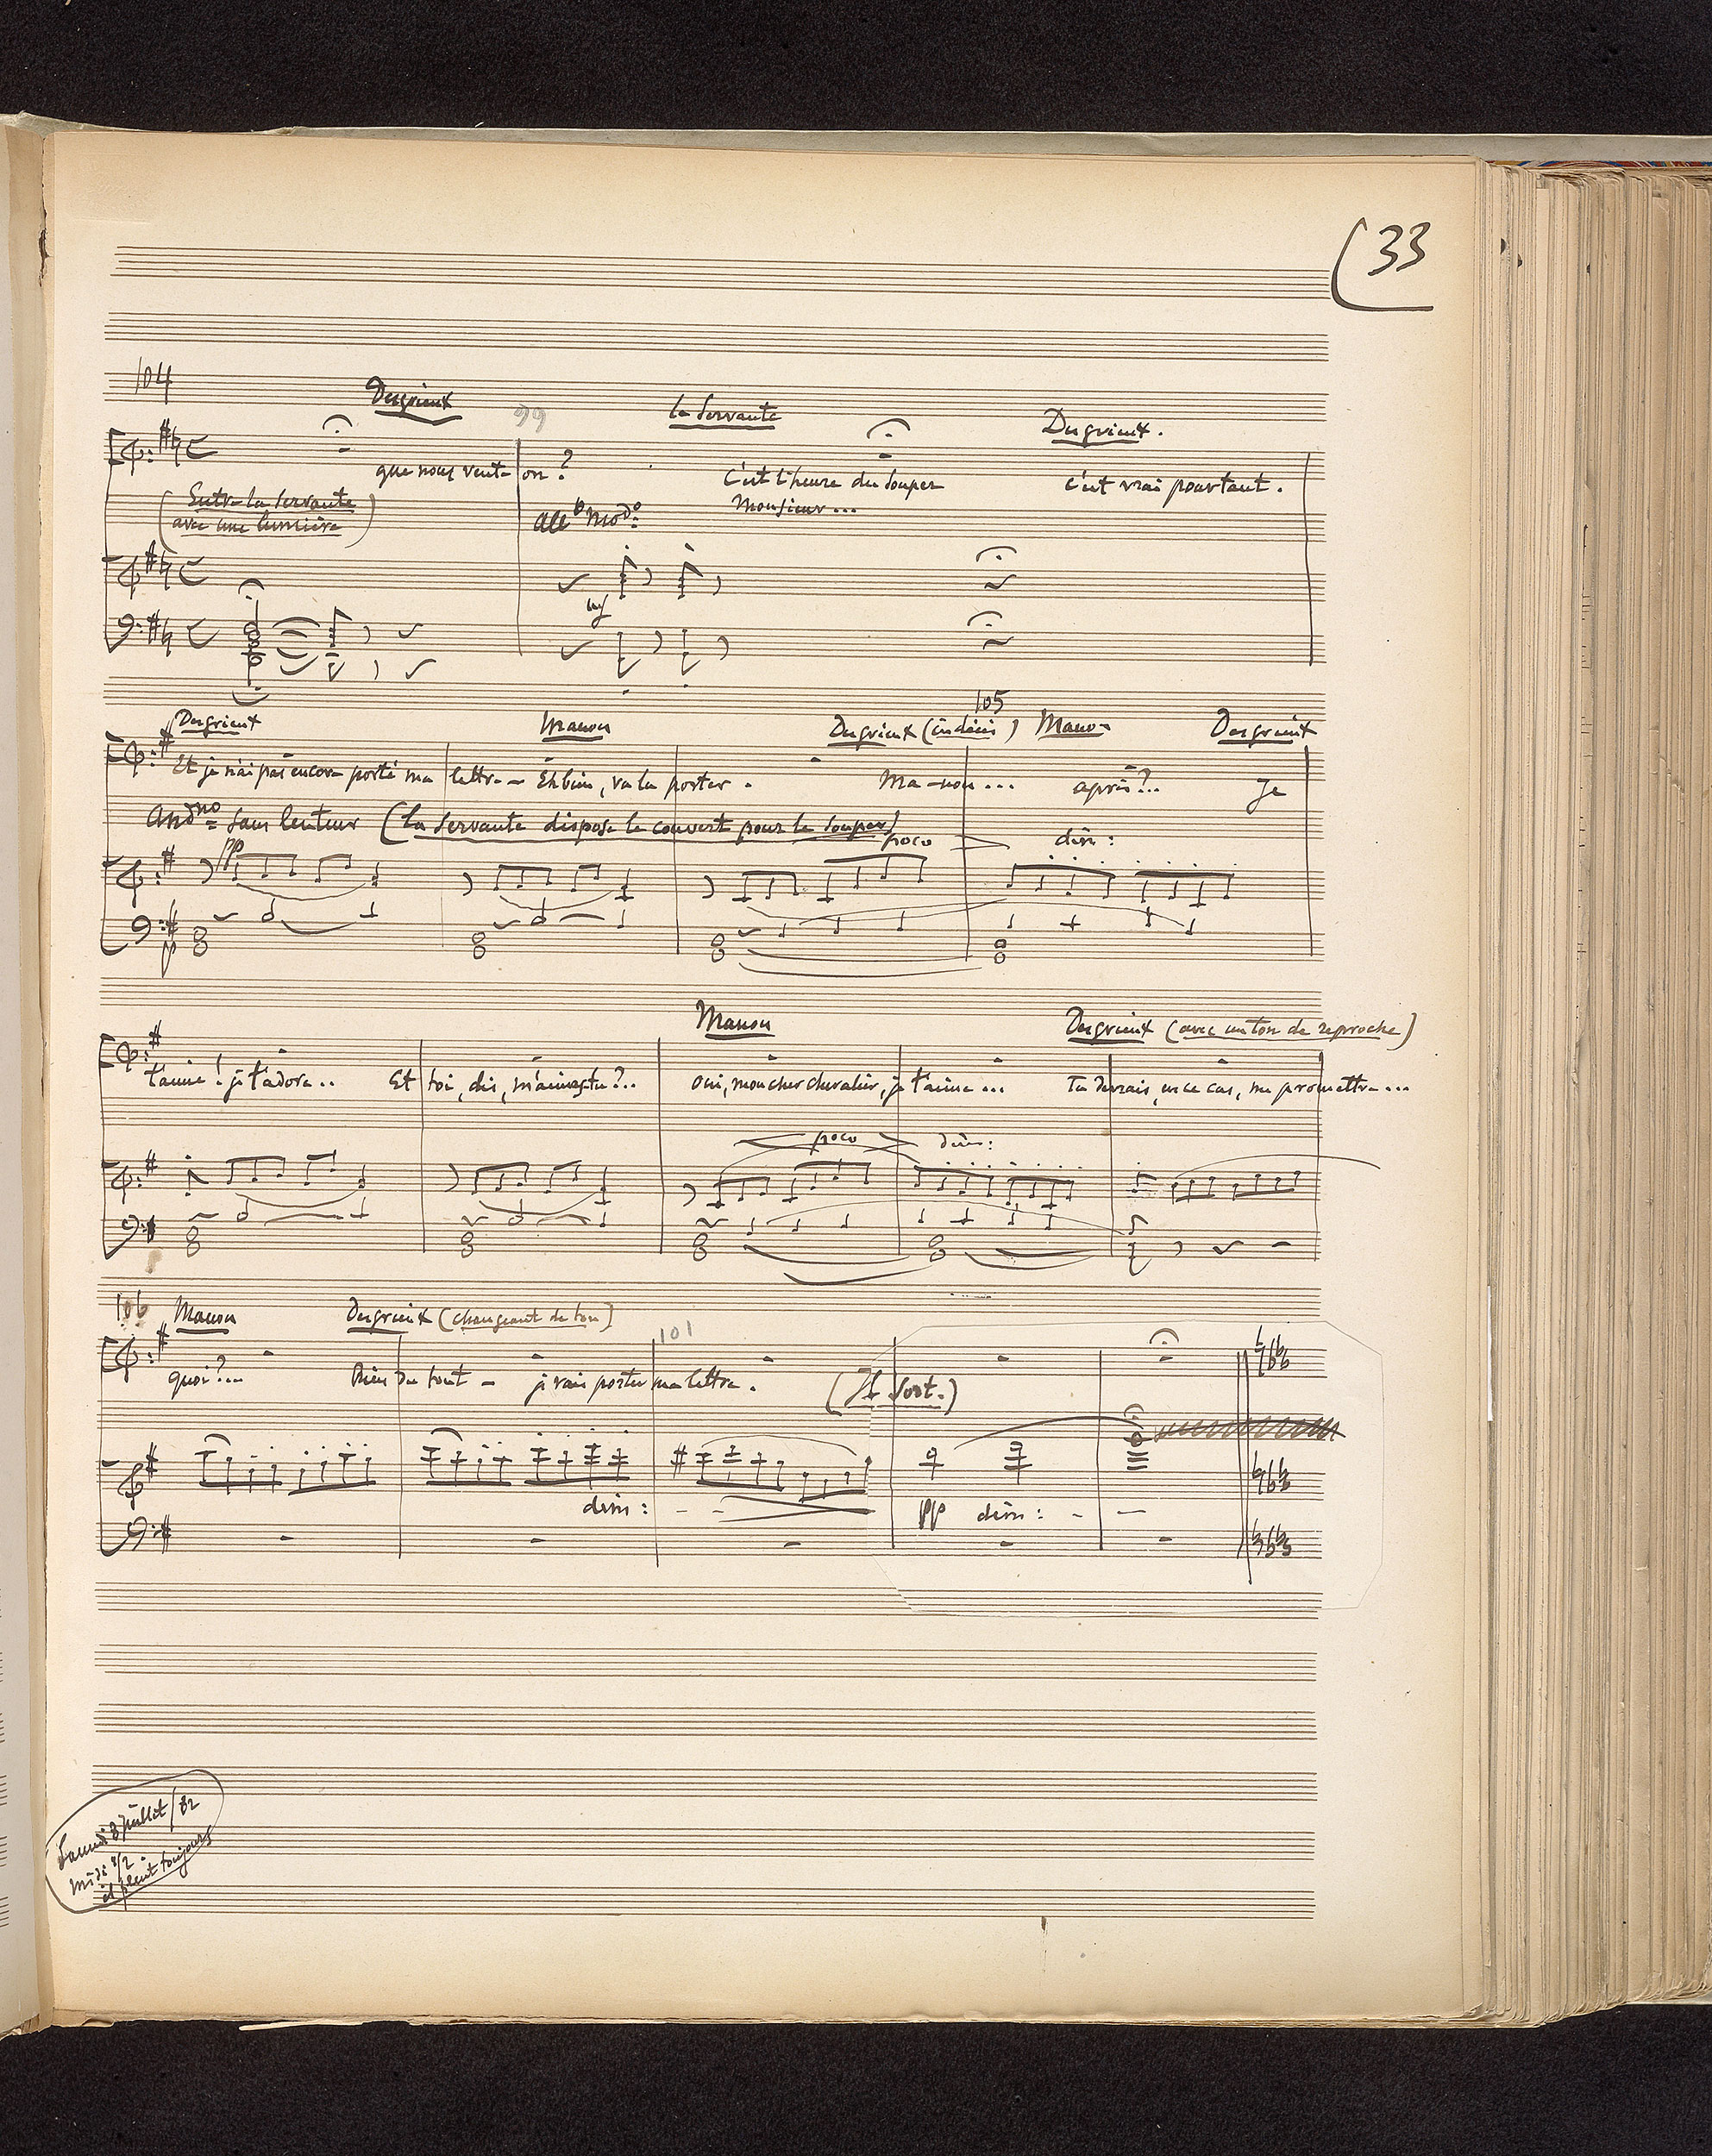 33
104
Desgrieux
99
la Servante
Desgrieux.
que nous veut-on?
c'est l'heure du souper
Monsieur...
c'est vrai pourtant.
(Entre la servante
avec une lumière)
all° mod°
mf
105
Desgrieux
Manon
Desgrieux (indécis)
Manon
Desgrieux
Et je n'ai pas encore porté ma lettre - Eh bien, va la porter.
Ma-non...
après?...
Je
And no sans lenteur (la servante dispose le couvert pour le souper)
poco
dim:
pp
p
Manon
Desgrieux (avec un ton de reproche)
t'aime! je t'adore..
Et toi, dis, m'aimes-tu?..
oui, mon cher chevalier, je t'aime...
Tu devrais, en ce cas, me promettre...
poco
dim:
106
Manon
Desgrieux (changeant de ton)
101
quoi?...
Rien du tout - je vais porter ma lettre.
(Il sort.)
dim: - -
pp dim: - -
Samedi 8 juillet/82
midi 1/2.
il pleut toujours